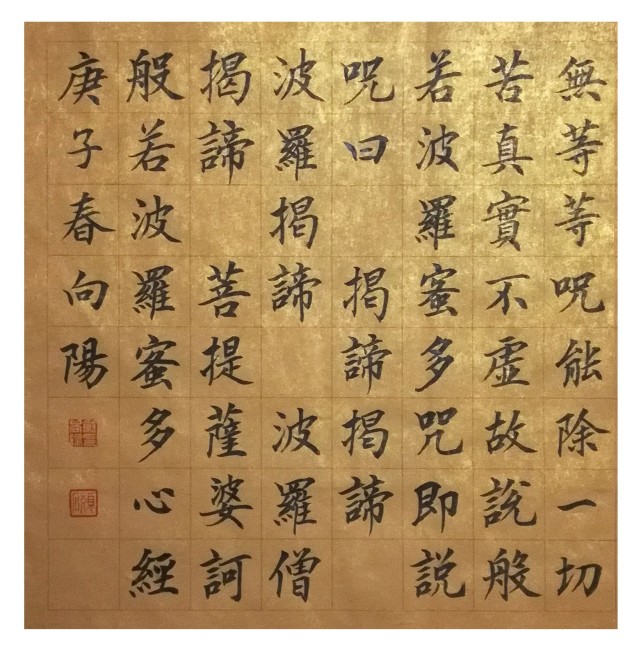 無等等咒能除一切
苦真實不虛故說般
若波羅蜜多咒即説
咒曰 揭諦揭諦
波羅揭諦 波羅僧
揭諦 菩提薩婆訶
般若波羅蜜多心經
庚子春向陽